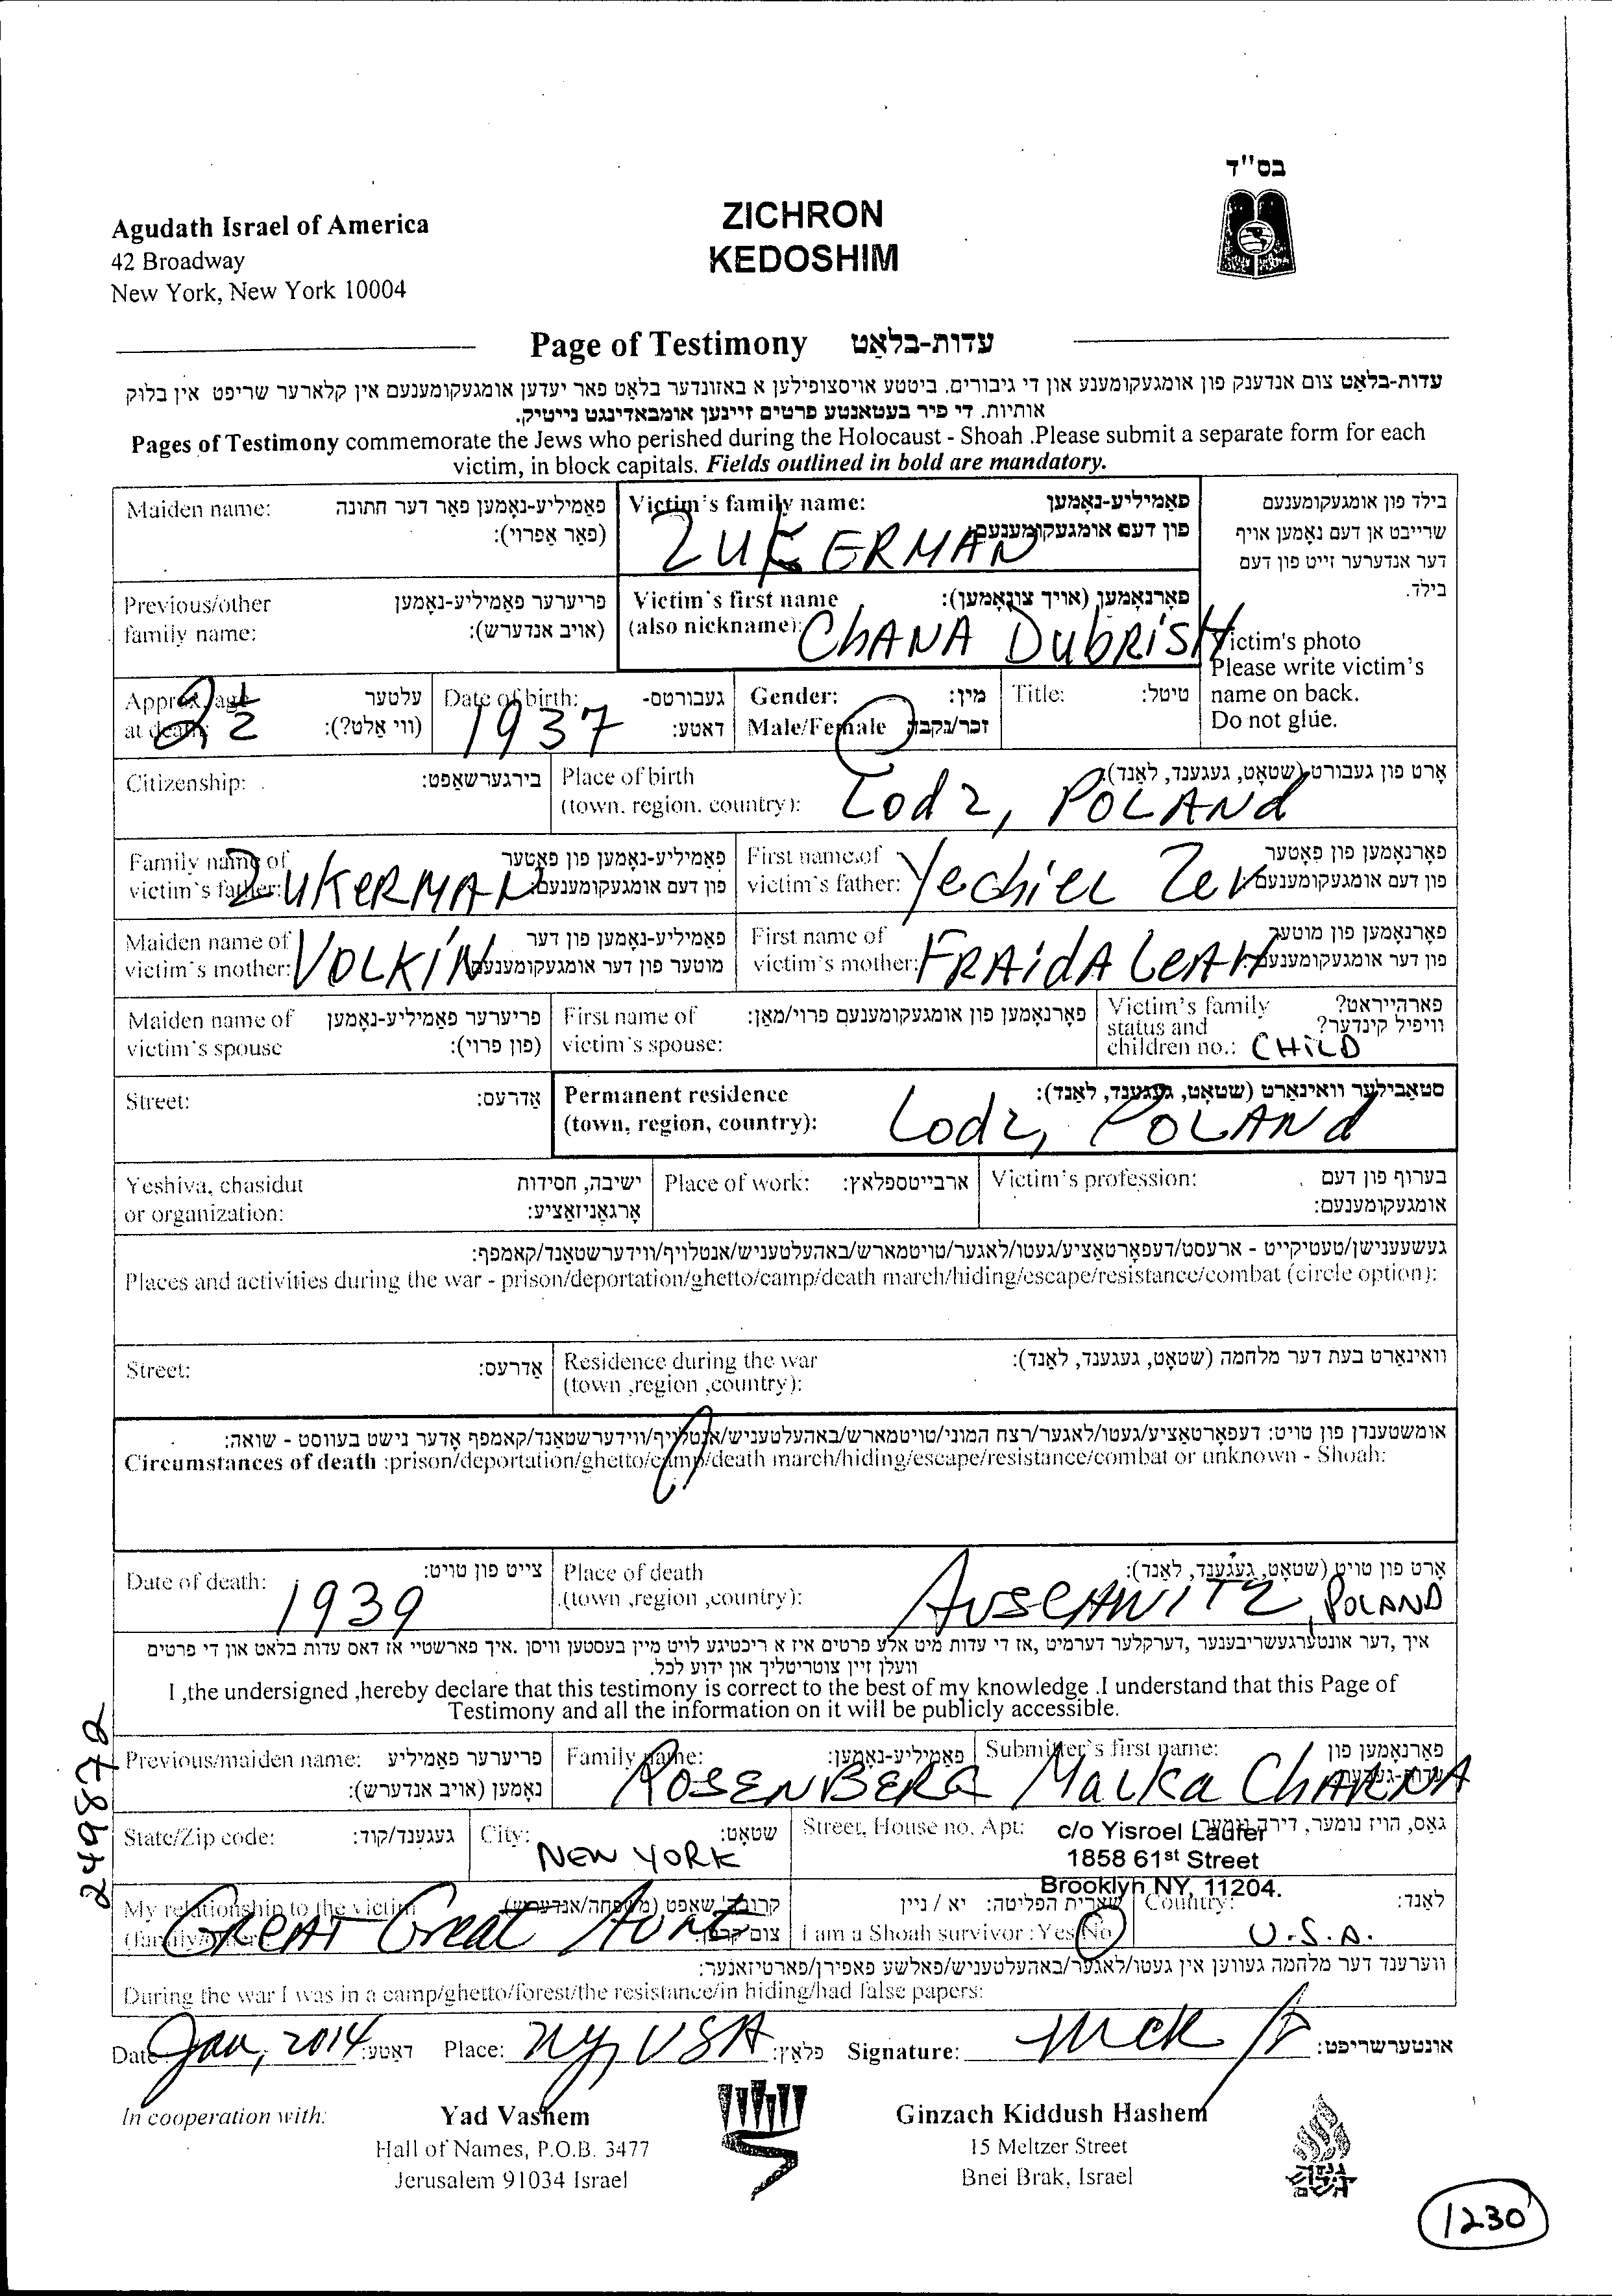 בס"ד
Agudath Israel of America
42 Broadway
New York, New York 10004
ZICHRON
KEDOSHIM
Page of Testimony עדות-בלאַט
עדות-בלאַט צום אנדענק פון אומגעקומענע און די גיבורים. ביטטע אויסצופילען א באזונדער בלאַט פאר יעדען אומגעקומענעם אין קלארער שריפט אין בלוק
אותיות. די פיר בעטאנטע פרטים זיינען אומבאדינגט נייטיק.
Pages of Testimony commemorate the Jews who perished during the Holocaust - Shoah .Please submit a separate form for each
victim, in block capitals. Fields outlined in bold are mandatory.
Maiden name: פאַמיליע-נאָמען פאר דער חתונה
(פאר אַפרוי):
Victim's family name: פאַמיליע-נאָמען
פון דעם אומגעקומענעם:
ZUKERMAN
בילד פון אומגעקומענעם
שרייבט אן דעם נאָמען אויף
דער אנדערער זייט פון דעם
בילד.
Victim's photo
Please write victim's
name on back.
Do not glue.
Previous/other פריערער פאַמיליע-נאָמען
family name: (אויב אנדערש):
Victim's first name פאָרנאָמען (אויך צונאָמען):
(also nickname): ChANA DubRISH
Approx. age עלטער
at death: (ווי אַלט?):
2 1/2
Date of birth: געבורטס-
דאטע:
1937
Gender: מין:
Male/Female זכר/נקבה
Title: טיטל:
Citizenship: בירגערשאַפט:
Place of birth אָרט פון געבורט (שטאָט, געגענד, לאַנד):
(town. region. country): Lodz, POLANd
Family name of פאַמיליע-נאָמען פון פאָטער
victim's father: פון דעם אומגעקומענעם
ZUKERMAN
First name of פאָרנאָמען פון פאָטער
victim's father: פון דעם אומגעקומענעם
Yechiel Zev
Maiden name of פאַמיליע-נאָמען פון דער
victim's mother: מוטער פון דער אומגעקומענעם
VOLKIN
First name of פאָרנאָמען פון מוטער
victim's mother: פון דער אומגעקומענעם
FRAidA LeAH
Maiden name of פריערער פאַמיליע-נאָמען
victim's spouse (פון פרוי):
First name of פאָרנאָמען פון אומגעקומענעם פרוי/מאַן:
victim's spouse:
Victim's family פארהייראט?
status and וויפיל קינדער?
children no.: CHILD
Street: אַדרעס:
Permanent residence סטאַבילער וואוינאָרט (שטאָט, געגענד, לאַנד):
(town, region, country): Lodz, POLANd
Yeshiva, chasidut ישיבה, חסידות
or organization: אָרגאַניזאַציע:
Place of work: ארבייטספלאץ:
Victim's profession: בערוף פון דעם
אומגעקומענעם:
געשעענישן/טעטיקייט - ארעסט/דעפאָרטאַציע/געטו/לאגער/טויטמארש/באהעלטעניש/אנטלויף/ווידערשטאַנד/קאמפף:
Places and activities during the war - prison/deportation/ghetto/camp/death march/hiding/escape/resistance/combat (circle option):
Street: אַדרעס:
Residence during the war וואוינאָרט בעת דער מלחמה (שטאָט, געגענד, לאַנד):
(town ,region ,country):
אומשטענדן פון טויט: דעפאָרטאַציע/געטו/לאגער/רצח המוני/טויטמארש/באהעלטעניש/אנטלויף/ווידערשטאַנד/קאמפף אָדער נישט בעוווסט - שואה:
Circumstances of death :prison/deportation/ghetto/camp/death march/hiding/escape/resistance/combat or unknown - Shoah:
Date of death: צייט פון טויט:
1939
Place of death אָרט פון טויט (שטאָט, געגענד, לאַנד):
(town ,region ,country): AUSCHWITZ, POLAND
איך ,דער אונטערגעשריבענער ,דערקלער דערמיט ,אז די עדות מיט אלע פרטים איז א ריכטיגע לויט מיין בעסטען וויסן .איך פארשטיי אז דאס עדות בלאט און די פרטים
וועלן זיין צוטריטליך און ידוע לכל.
I ,the undersigned ,hereby declare that this testimony is correct to the best of my knowledge .I understand that this Page of
Testimony and all the information on it will be publicly accessible.
Previous/maiden name: פריערער פאַמיליע
נאָמען (אויב אנדערש):
Family name: פאַמיליע-נאָמען:
ROSENBERG
Submitter's first name: פאָרנאָמען פון
Malka CHARNA
State/Zip code: געגענד/קוד:
City: שטאָט:
NEW YORK
Street, House no. Apt: גאַס, הויז נומער, דירה נומער:
c/o Yisroel Laufer
1858 61st Street
Brooklyn NY, 11204.
My relationship to the victim
GREAT Great AuNt
שארית הפליטה: יא / ניין
I am a Shoah survivor : Yes/No
Country: לאַנד:
U.S.A.
ווערענד דער מלחמה געווען אין געטו/לאגער/באהעלטעניש/פאלשע פאפירן/פארטיזאנער:
During the war I was in a camp/ghetto/forest/the resistance/in hiding/had false papers:
Date: Jan, 2014 דאטע: Place: NY, USA פלאַץ: Signature: אונטערשריפט:
In cooperation with:
Yad Vashem
Hall of Names, P.O.B. 3477
Jerusalem 91034 Israel
Ginzach Kiddush Hashem
15 Meltzer Street
Bnei Brak, Israel
249872
1230